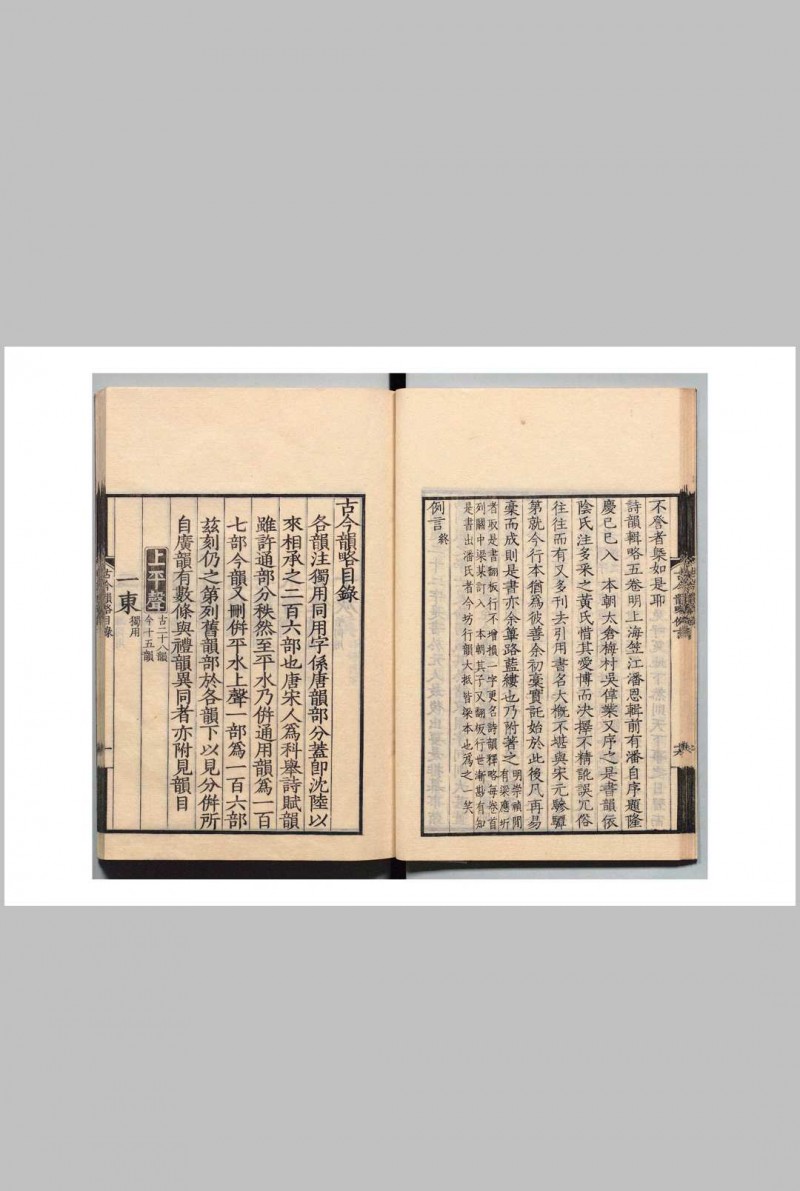 不登者槩如是耶
詩韻輯略五卷明上海笠江潘恩輯前有潘自序題隆
慶己巳入　本朝太倉梅村吳偉業又序之是書韻依
陰氏注多采之黃氏惜其愛博而决擇不精訛誤冗俗
往往而有又多刊去引用書名大概不堪與宋元驂驔
第就今行本猶爲彼善余初藁實託始於此後凡再易
藁而成則是書亦余篳路藍縷也乃附著之
明崇禎間有梁應圻
者取是書翻板行不增損一字更名詩韻釋略每卷首
列關中梁某訂入　本朝其子又翻板行世漸尠有知
是書出潘氏者今坊行韻大抵皆梁本也爲之一笑
例言終
古今韻略目錄
各韻注獨用同用字係唐韻部分蓋卽沈陸以
來相承之二百六部也唐宋人爲科舉詩賦韻
雖許通部分秩然至平水乃併通用韻爲一百
七部今韻又刪併平水上聲一部爲一百六部
茲刻仍之第列舊韻部於各韻下以見分併所
自廣韻有數條與禮韻異同者亦附見韻目
上平聲
古二十八韻
今十五韻
一東獨用
古今韻略目錄
一